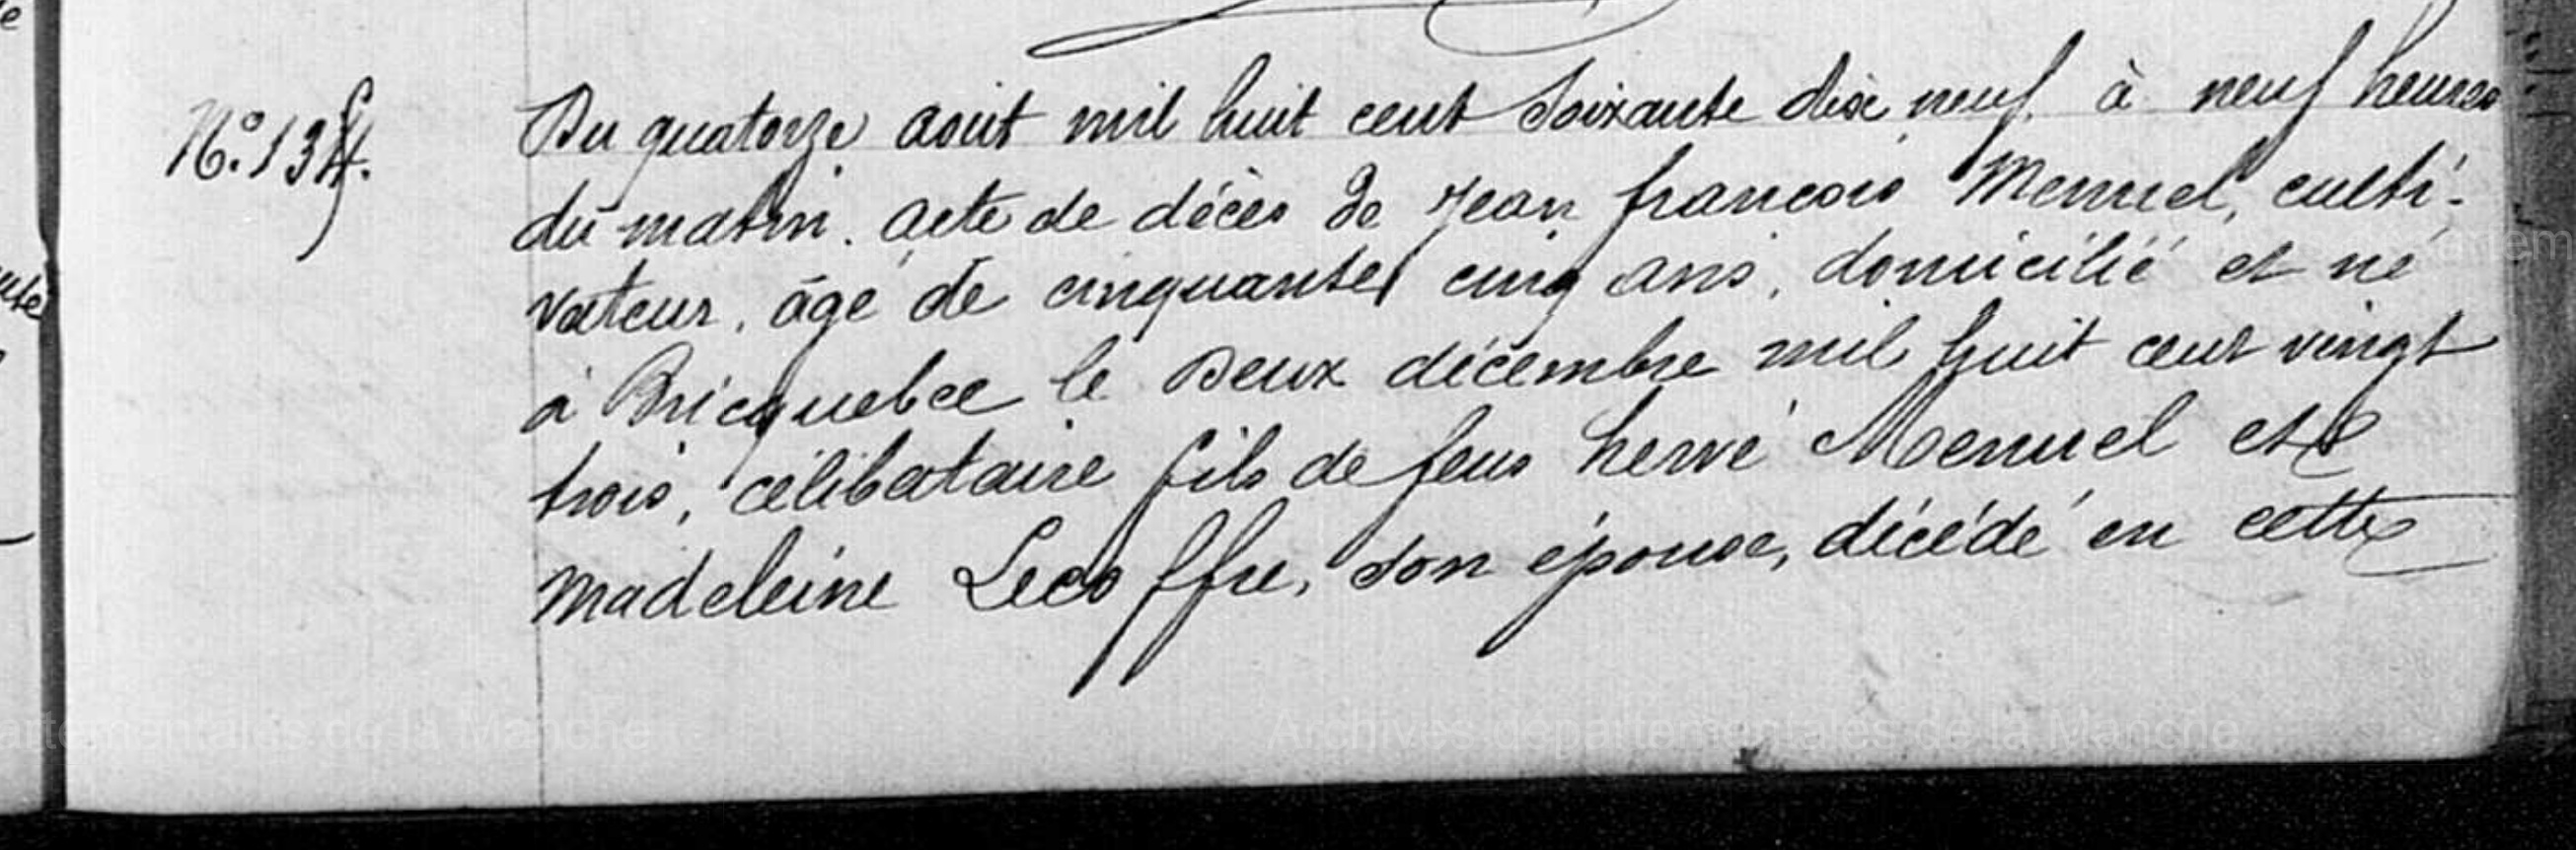 N.° 134.
Du quatorze août mil huit cent soixante dix neuf, à neuf heures
du matin. acte de décès de Jean françois Mennel, culti-
vateur, âgé de cinquante cinq ans, domicilié et né
à Bricquebec le Deux décembre mil huit cent vingt
trois, célibataire fils de feus hervé Mennel et
madeleine Lecoffre, son épouse, décédé en cette
Archives départementales de la Manche